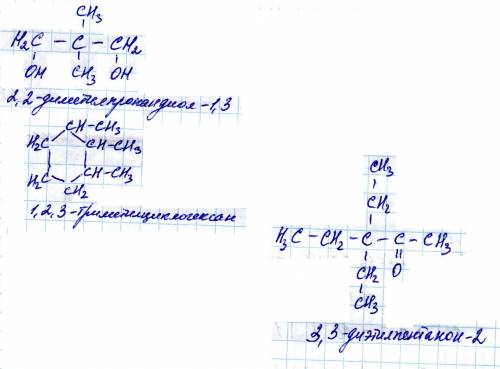 CH₃
H₂C – C – CH₂
OH CH₃ OH
2,2-диметилпропандиол-1,3
CH-CH₃
H₂C CH-CH₃
H₂C CH-CH₃
CH₂
1,2,3-триметилциклогексан
CH₃
CH₂
H₃C – CH₂ – C – C – CH₃
CH₂ O
CH₃
3,3-диэтилпентанон-2